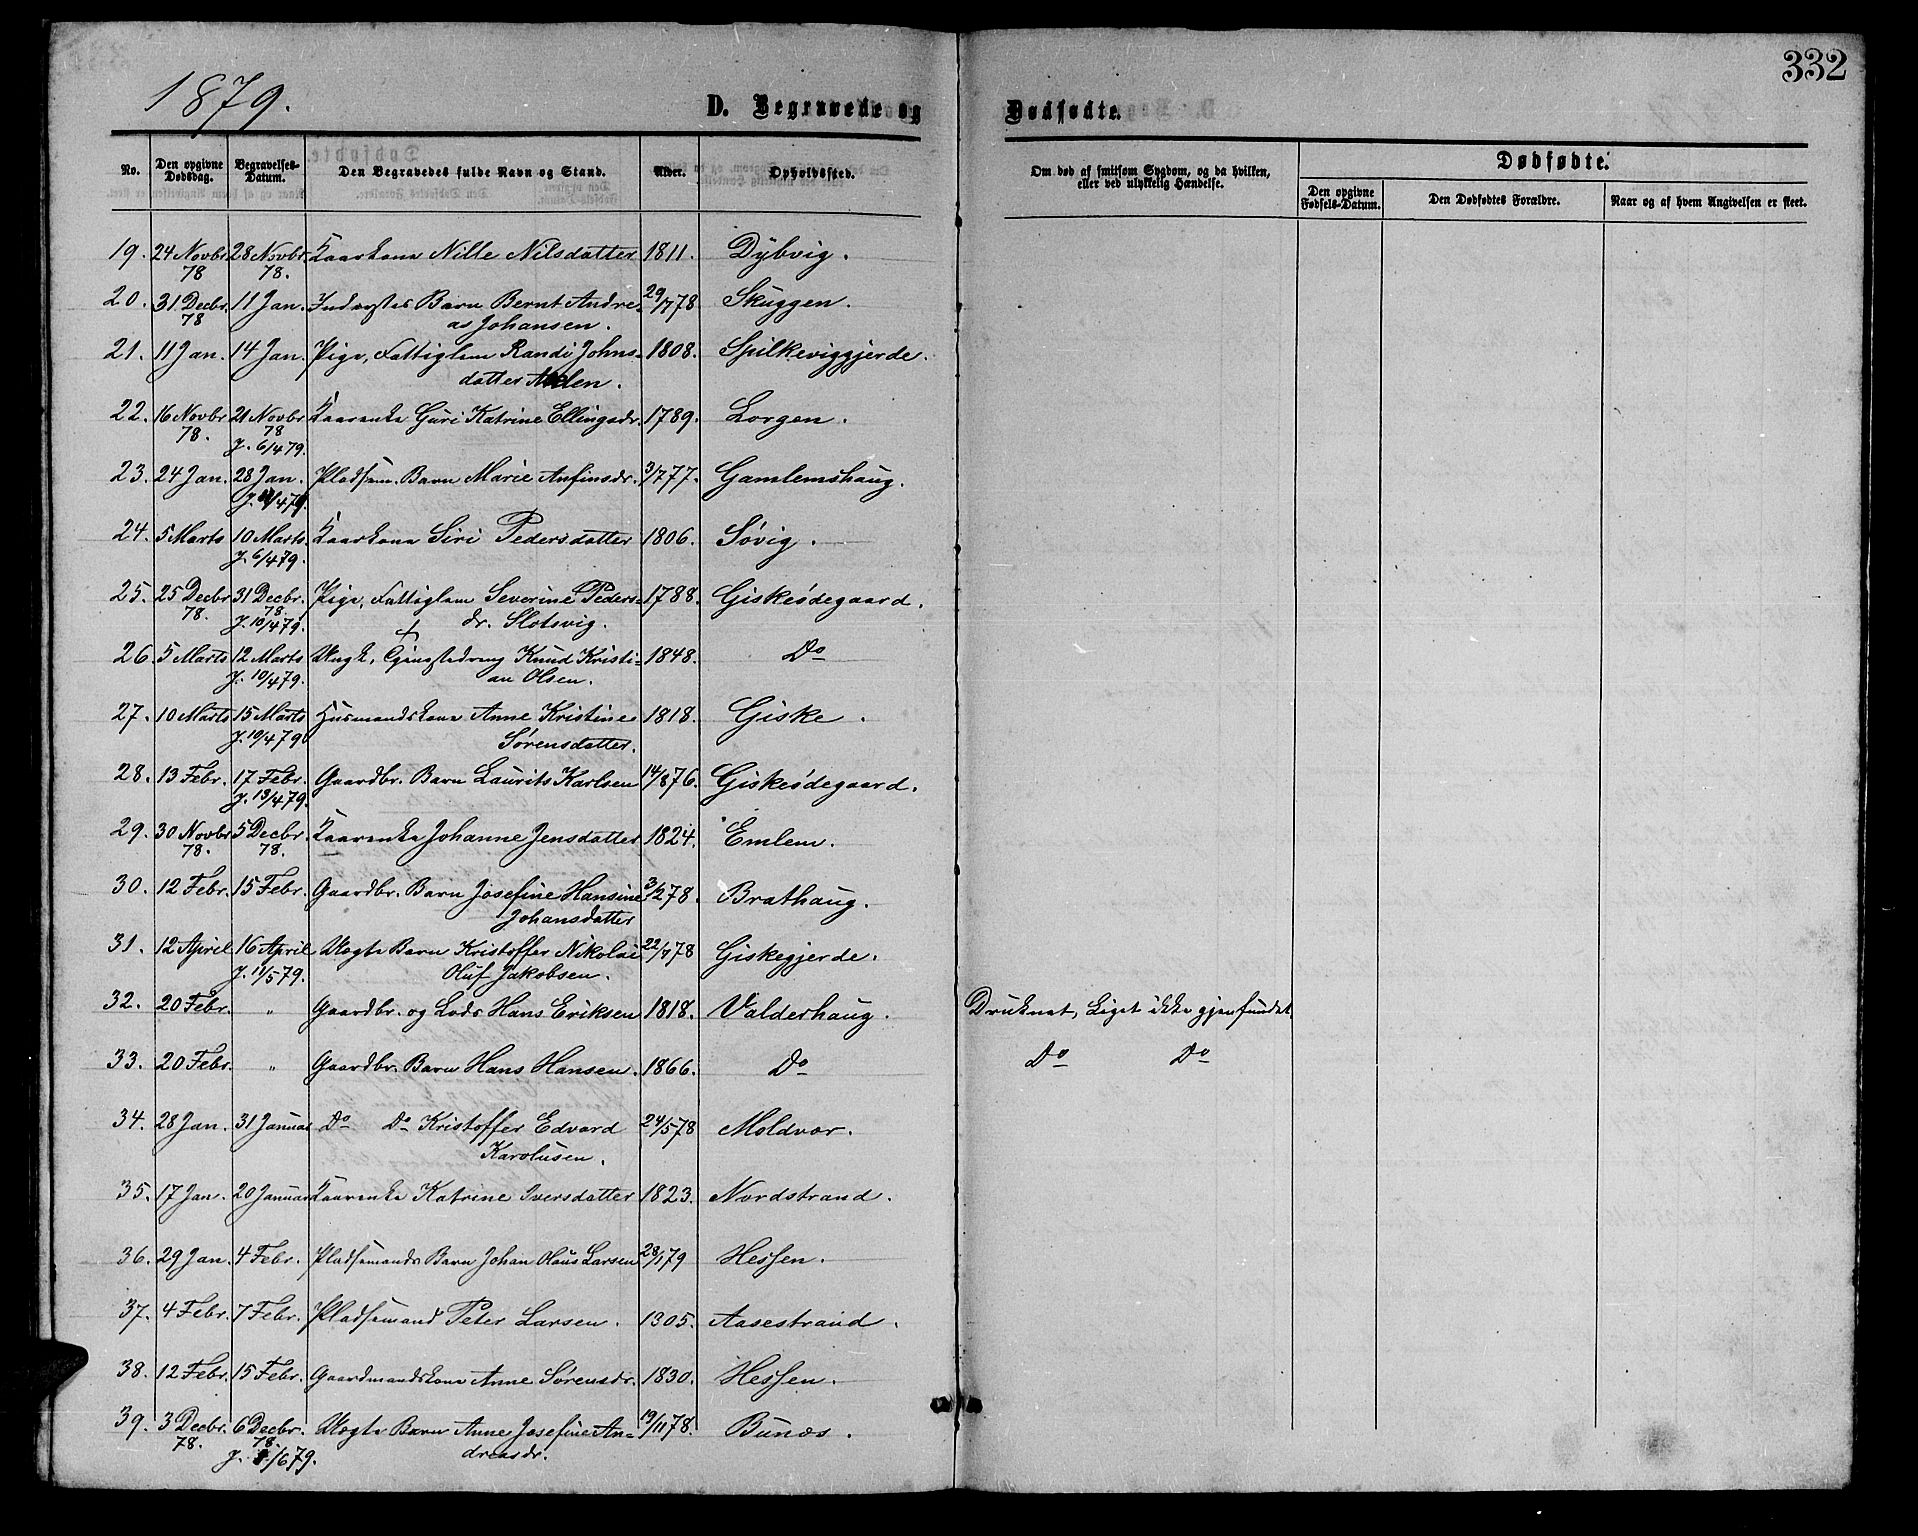 332
1879.
D. Begravede og Dødfødte.
No. Den opgivne Dødsdag. Begravelses-Datum. Den Begravedes fulde Navn og Stand. Alder. Opholdssted. Om død af smitsom Sygdom, og da hvilken, eller ved ulykkelig Hændelse. Dødfødte.
Den opgivne Fødsels-Datum. Den Dødfødtes Forældre. Naar og af hvem Angivelsen er skeet.
19. 24 Novbr 78 28 Novbr 78. Kaarkone Nille Nilsdatter 1811. Dybvig.
20. 31 Decbr. 78 11 Jan. Inderstes Barn Bernt Andre-
as Johansen. 29/7 78. Skuggen.
21. 11 Jan. 14 Jan. Pige, Fattiglem Randi Johns-
datter 1808. Spilkeviggjerde.
22. 16 Novbr 78. 21 Novbr 78 J. 6/4 79. Kaarenke Guri Katrine Ellingsdr. 1789. Lorgen.
23. 24 Jan. 28 Jan. Pladsem. Barn Marie Anfinsdr. 3/7 77. Gamlemshaug.
24. 5 Marts 10 Marts J. 6/4 79. Kaarkone Siri Pedersdatter 1806. Søvig.
25. 25 Decbr 78. 31 Decbr. 78 J. 10/4 79. Pige, Fattiglem Severine Peders-
dr. Slotsvig. 1788. Giskeødegaard.
26. 5 Marts 12 Marts J. 10/4 79. Ungk, Tjenestedreng Knud Kristi-
an Olsen. 1848. Do
27. 10 Marts 15 Marts J. 10/4 79. Husmandskone Anne Kristine
Sørensdatter. 1818. Giske.
28. 13 Febr. 17 Febr. J. 13/4 79. Gaardbr. Barn Laurits Karlsen 14/8 76. Giskeødegaard.
29. 30 Novbr 78. 5 Decbr. 78. Kaarenke Johanne Jensdatter 1824. Emlem.
30. 12 Febr. 15 Febr. Gaardbr. Barn Josefine Hansine
Johansdatter 3/2 78. Brathaug.
31. 12 April 16 April J. 11/5 79. Uægte Barn Kristoffer Nikolai
Oluf Jakobsen. 22/7 78 Giskegjerde.
32. 20 Febr. " Gaardbr. og Lods Hans Eriksen 1818. Valderhaug. Druknet, Liget ikke gjenfundet.
33. 20 Febr. " Gaardbr. Barn Hans Hansen. 1866. Do Do Do
34. 28 Jan. 31 Januar Do Do Kristoffer Edvard
Karolusen. 24/5 78 Moldvær.
35. 17 Jan. 20 Januar Kaarenke Katrine Iversdatter 1823. Nordstrand.
36. 29 Jan. 4 Febr. Pladsemands Barn Johan Olaus Larsen 28/1 79 Hessen.
37. 4 Febr. 7 Febr. Pladsemand Peter Larsen. 1805. Aasestrand.
38. 12 Febr. 15 Febr. Gaardmandskone Anne Sørensdr. 1830. Hessen.
39. 3 Decbr. 78. 6 Decbr. 78. Uægte Barn Anne Josefine An-
dreasdr. 19/11 78. Bunes.